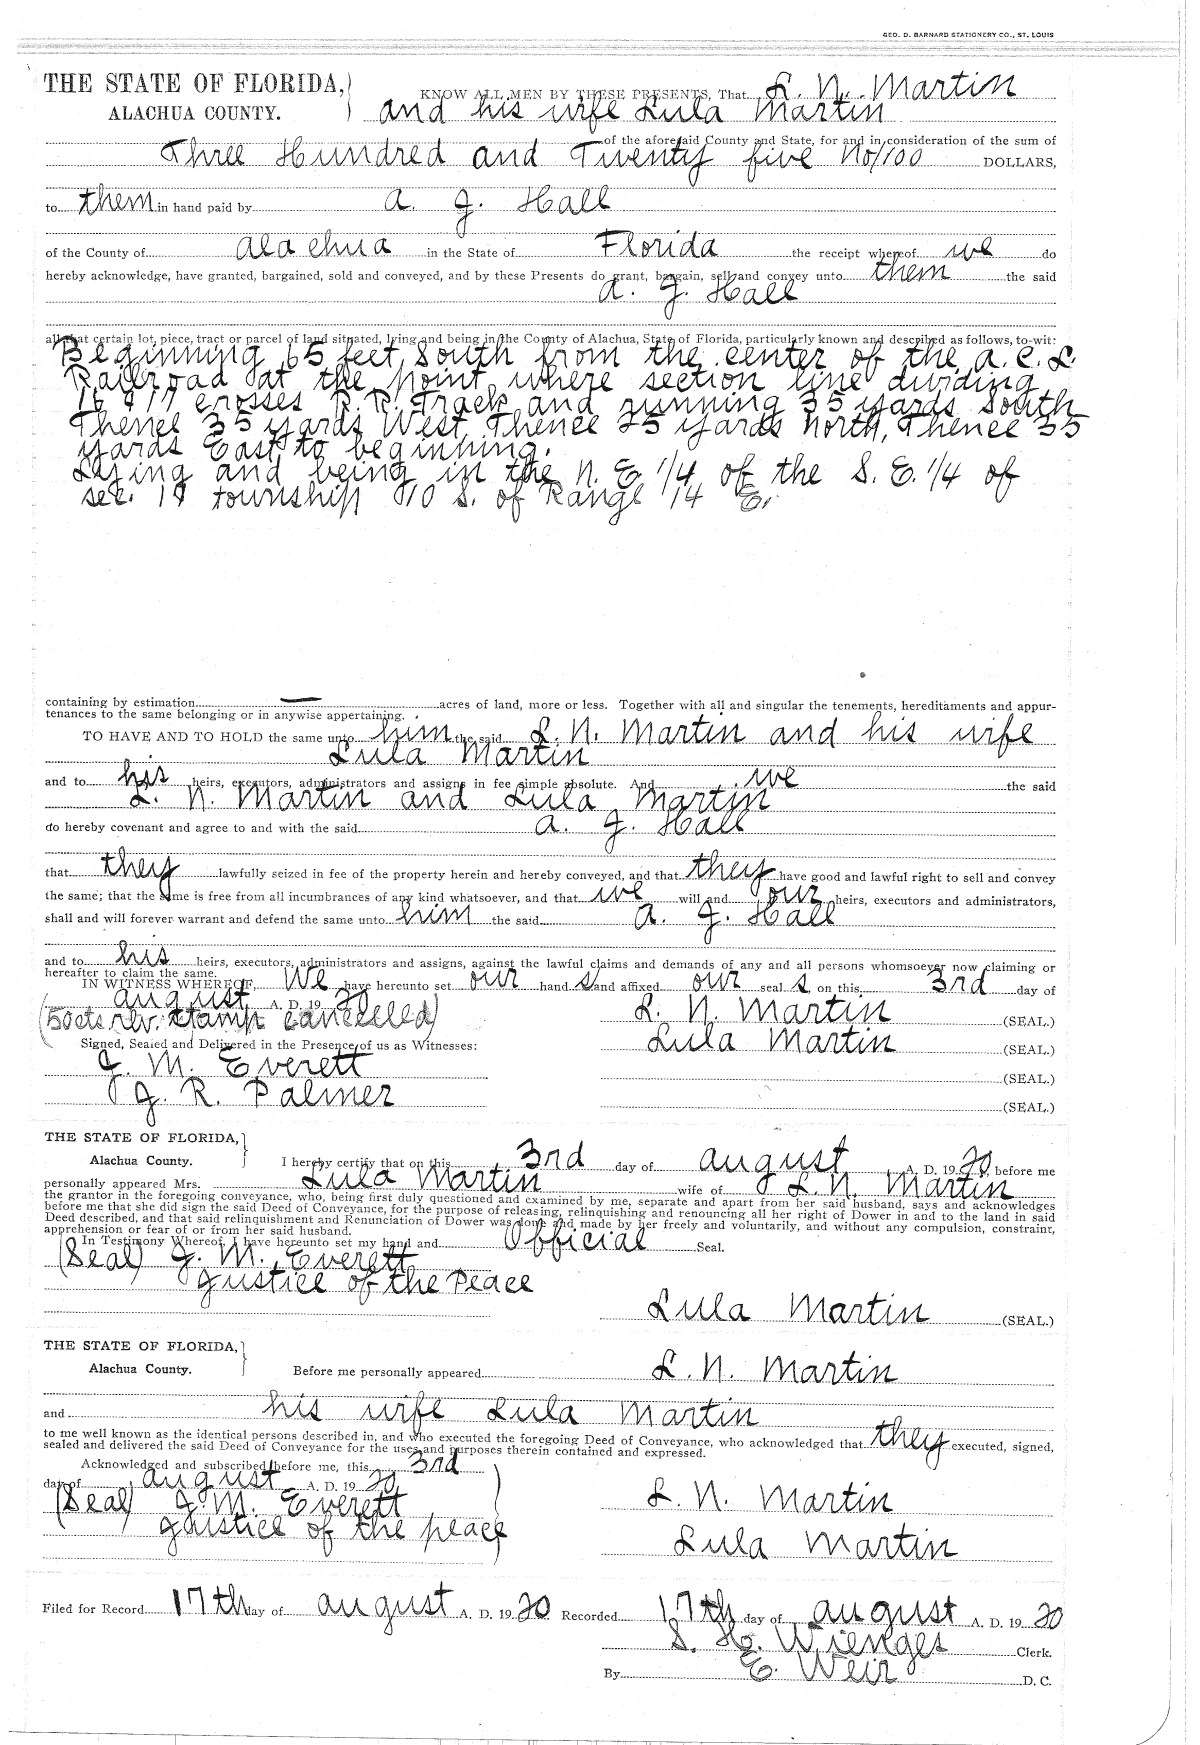 GEO. D. BARNARD STATIONERY CO., ST. LOUIS
THE STATE OF FLORIDA,
ALACHUA COUNTY.
KNOW ALL MEN BY THESE PRESENTS, That L. N. Martin
and his wife Lula Martin
of the aforesaid County and State, for and in consideration of the sum of
Three Hundred and Twenty five No/100 DOLLARS,
to them in hand paid by A. J. Hall
of the County of Alachua in the State of Florida the receipt whereof we do
hereby acknowledge, have granted, bargained, sold and conveyed, and by these Presents do grant, bargain, sell and convey unto them the said
A. J. Hall
all that certain lot, piece, tract or parcel of land situated, lying and being in the County of Alachua, State of Florida, particularly known and described as follows, to-wit:
Beginning 65 feet South from the center of the A. C. L.
Railroad at the point where section line dividing
16 & 17 crosses R. R. Track and running 35 yards South
Thence 35 yards West, Thence 25 yards North, Thence 35
yards East to beginning.
Lying and being in the N. E. 1/4 of the S. E. 1/4 of
sec. 17 township 10 S. of Range 14 E.
containing by estimation — acres of land, more or less. Together with all and singular the tenements, hereditaments and appur-
tenances to the same belonging or in anywise appertaining.
TO HAVE AND TO HOLD the same unto him the said L. N. Martin and his wife
Lula Martin
and to his heirs, executors, administrators and assigns in fee simple absolute. And we the said
L. N. Martin and Lula Martin
do hereby covenant and agree to and with the said A. J. Hall
that they lawfully seized in fee of the property herein and hereby conveyed, and that they have good and lawful right to sell and convey
the same; that the same is free from all incumbrances of any kind whatsoever, and that we will and our heirs, executors and administrators,
shall and will forever warrant and defend the same unto him the said A. J. Hall
and to his heirs, executors, administrators and assigns, against the lawful claims and demands of any and all persons whomsoever now claiming or
hereafter to claim the same.
IN WITNESS WHEREOF, We have hereunto set our hand s and affixed our seal s on this 3rd day of
August A. D. 19 20 L. N. Martin (SEAL.)
(50cts rev. stamp cancelled)
Lula Martin (SEAL.)
Signed, Sealed and Delivered in the Presence of us as Witnesses:
J. M. Everett (SEAL.)
J. R. Palmer (SEAL.)
THE STATE OF FLORIDA,
Alachua County.
I hereby certify that on this 3rd day of August A. D. 19 20 before me
personally appeared Mrs. Lula Martin wife of L. N. Martin
the grantor in the foregoing conveyance, who, being first duly questioned and examined by me, separate and apart from her said husband, says and acknowledges
before me that she did sign the said Deed of Conveyance, for the purpose of releasing, relinquishing and renouncing all her right of Dower in and to the land in said
Deed described, and that said relinquishment and Renunciation of Dower was done and made by her freely and voluntarily, and without any compulsion, constraint,
apprehension or fear of or from her said husband.
In Testimony Whereof, I have hereunto set my hand and Official Seal.
(Seal) J. M. Everett
Justice of the Peace
Lula Martin (SEAL.)
THE STATE OF FLORIDA,
Alachua County.
Before me personally appeared L. N. Martin
and his wife Lula Martin
to me well known as the identical persons described in, and who executed the foregoing Deed of Conveyance, who acknowledged that they executed, signed,
sealed and delivered the said Deed of Conveyance for the uses and purposes therein contained and expressed.
Acknowledged and subscribed before me, this 3rd
day of August A. D. 19 20
(Seal) J. M. Everett L. N. Martin
Justice of the peace Lula Martin
Filed for Record 17th day of August A. D. 19 20 Recorded 17th day of August A. D. 19 20
S. H. Wienges Clerk.
By E. Weir D. C.